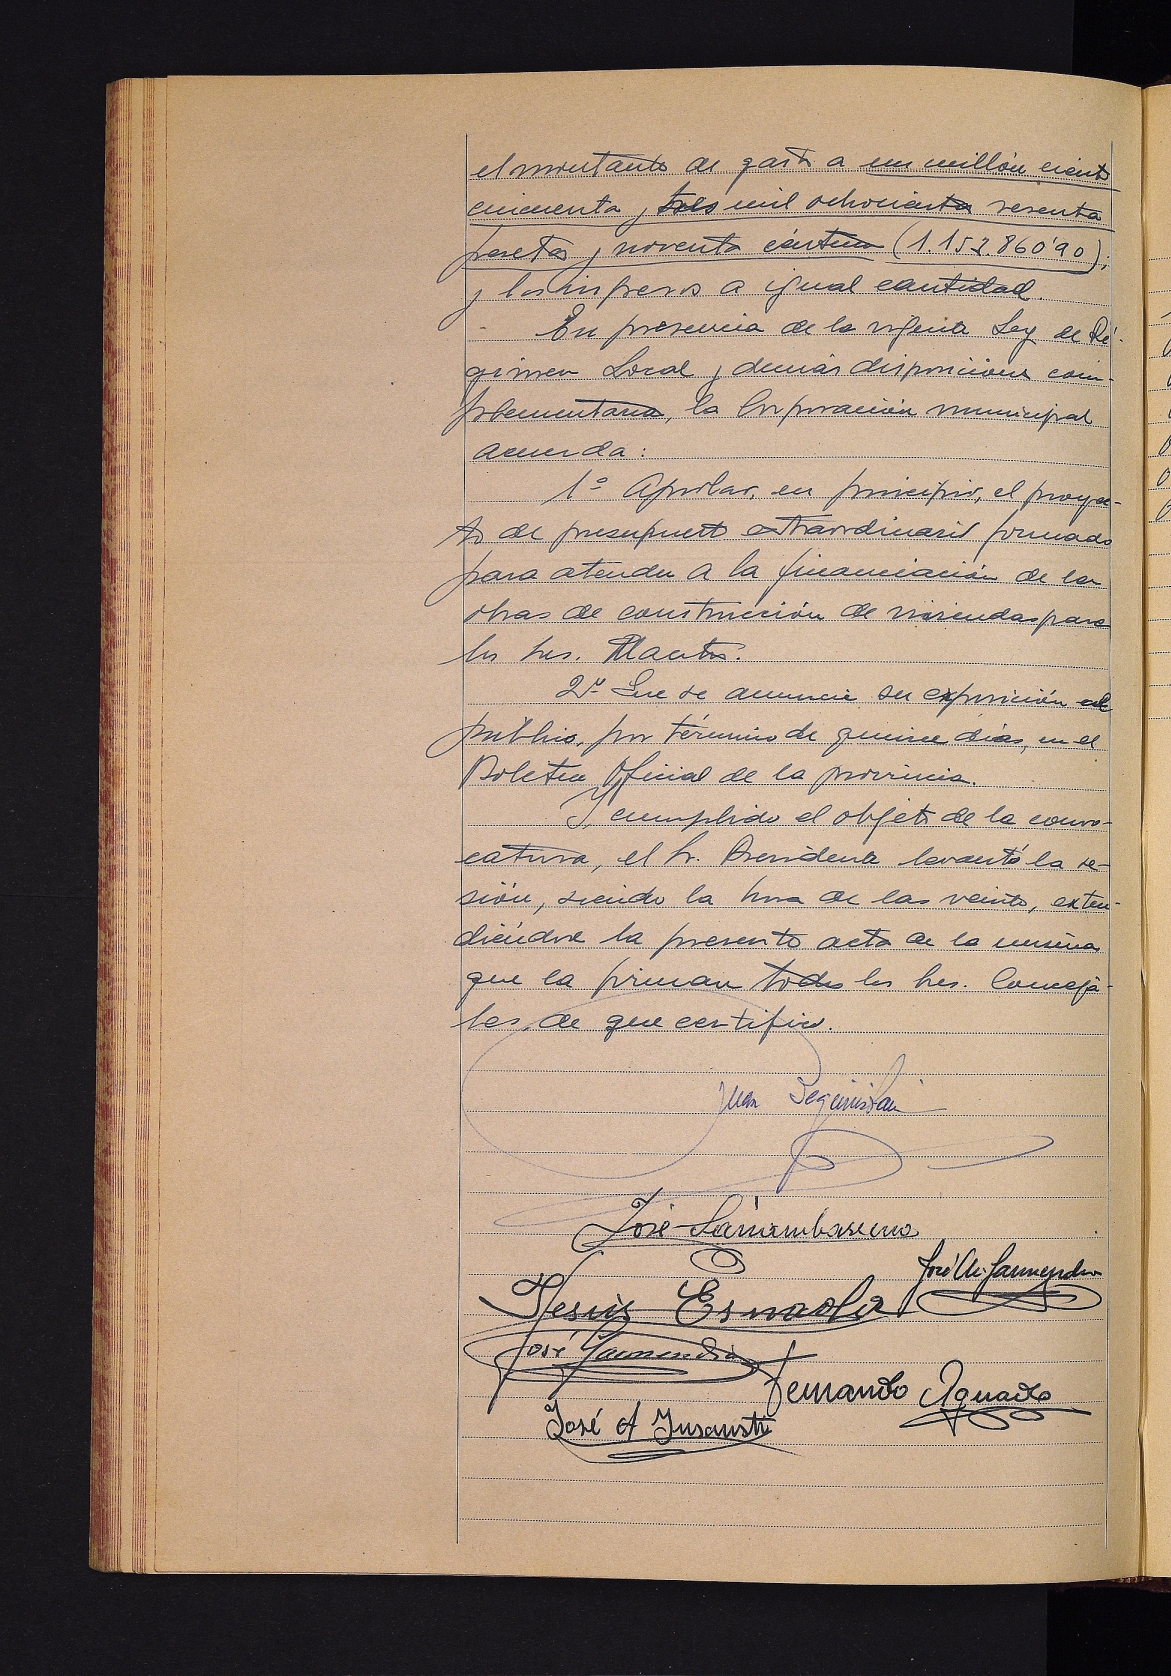 el montante de gasto a un millón ciento
cincuenta y tres mil ochocientas sesenta
pesetas y noventa céntimos (1.153.860'90);
y los ingresos a igual cantidad.
En presencia de la vigente Ley de Ré-
gimen Local y demás disposiciones com-
plementarias, la Corporación municipal
acuerda:
1º Aprobar, en principio, el proyec-
to de presupuesto extraordinario formado
para atender a la financiación de las
obras de construcción de viviendas para
los Sres. Maestros.
2º Que se anuncie su exposición al
público, por término de quince días, en el
Boletín Oficial de la provincia.
Y cumplido el objeto de la convo-
catoria, el Sr. Presidente levantó la se-
sión, siendo la hora de las veinte, exten-
diéndose la presente acta de la misma
que la firman todos los Sres. Conceja-
les, de que certifico.
Juan Beguiristain
José
José Mª Garmendia
Jesús Esnaola
José Garmendia
Fernando Aguado
José A Insausti